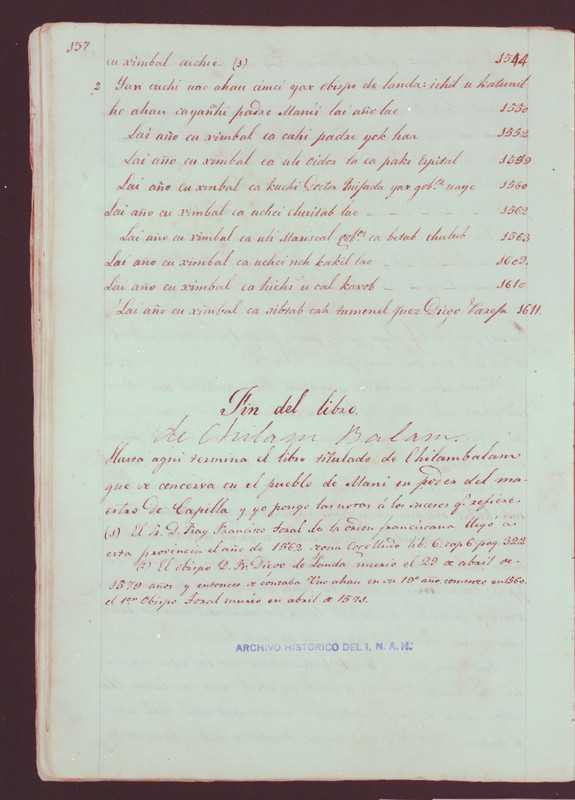 157
cu ximbal cuchie (1) 1544
2 Yan cuchi uac ahau cimci yax obispo de landa: ichil u katunil
ho ahau ca yanhi padre Manii lai año lae 1550
Lai año cu ximbal ca cahi padre yok haa 1552
Lai año cu ximbal ca uli Oidor la ca paki Espital 1559
Lai año cu ximbal ca kuchi Doctor Quijada yax gob.or uaye 1560
Lai año cu ximbal ca uchci chuitab lae - - - - 1562
Lai año cu ximbal ca uli Mariscal gob.or ca betab chulub 1563
Lai año cu ximbal ca uchci noh kakil lae - - - 1609.
Lai año cu ximbal ca hichi u cal kaxob - - - - 1610
Lai año cu ximbal ca oibtab cah tumenel Juez Diego Pareja 1611.
Fin del libro.
de Chilam Balam.
Hasta aqui termina el libro titulado de Chilambalam
que se concerva en el pueblo de Mani en poder del ma-
estro de Capilla y yo pongo las notas á los sucesos q.e refiere
(1) El Yr. D. Fray Francisco Toral de la orden franciscana llegó a
esta provincia el año de 1562 segun Cogolludo lib. 6. cap 6 pag. 322
(2) El obispo D. Fr. Diego de Landa murió el 29 de abril de
1579 años y entonces se contaba Uac ahau en su 19º año. comenzo en 1560.
el 1er Obispo Toral murio en abril de 1571.
ARCHIVO HISTORICO DEL I. N. A. H.